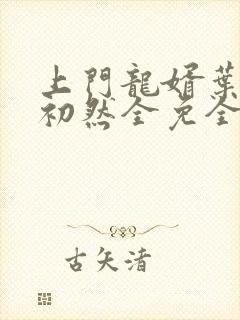 上門龍婿葉
初然全免全
古矢清